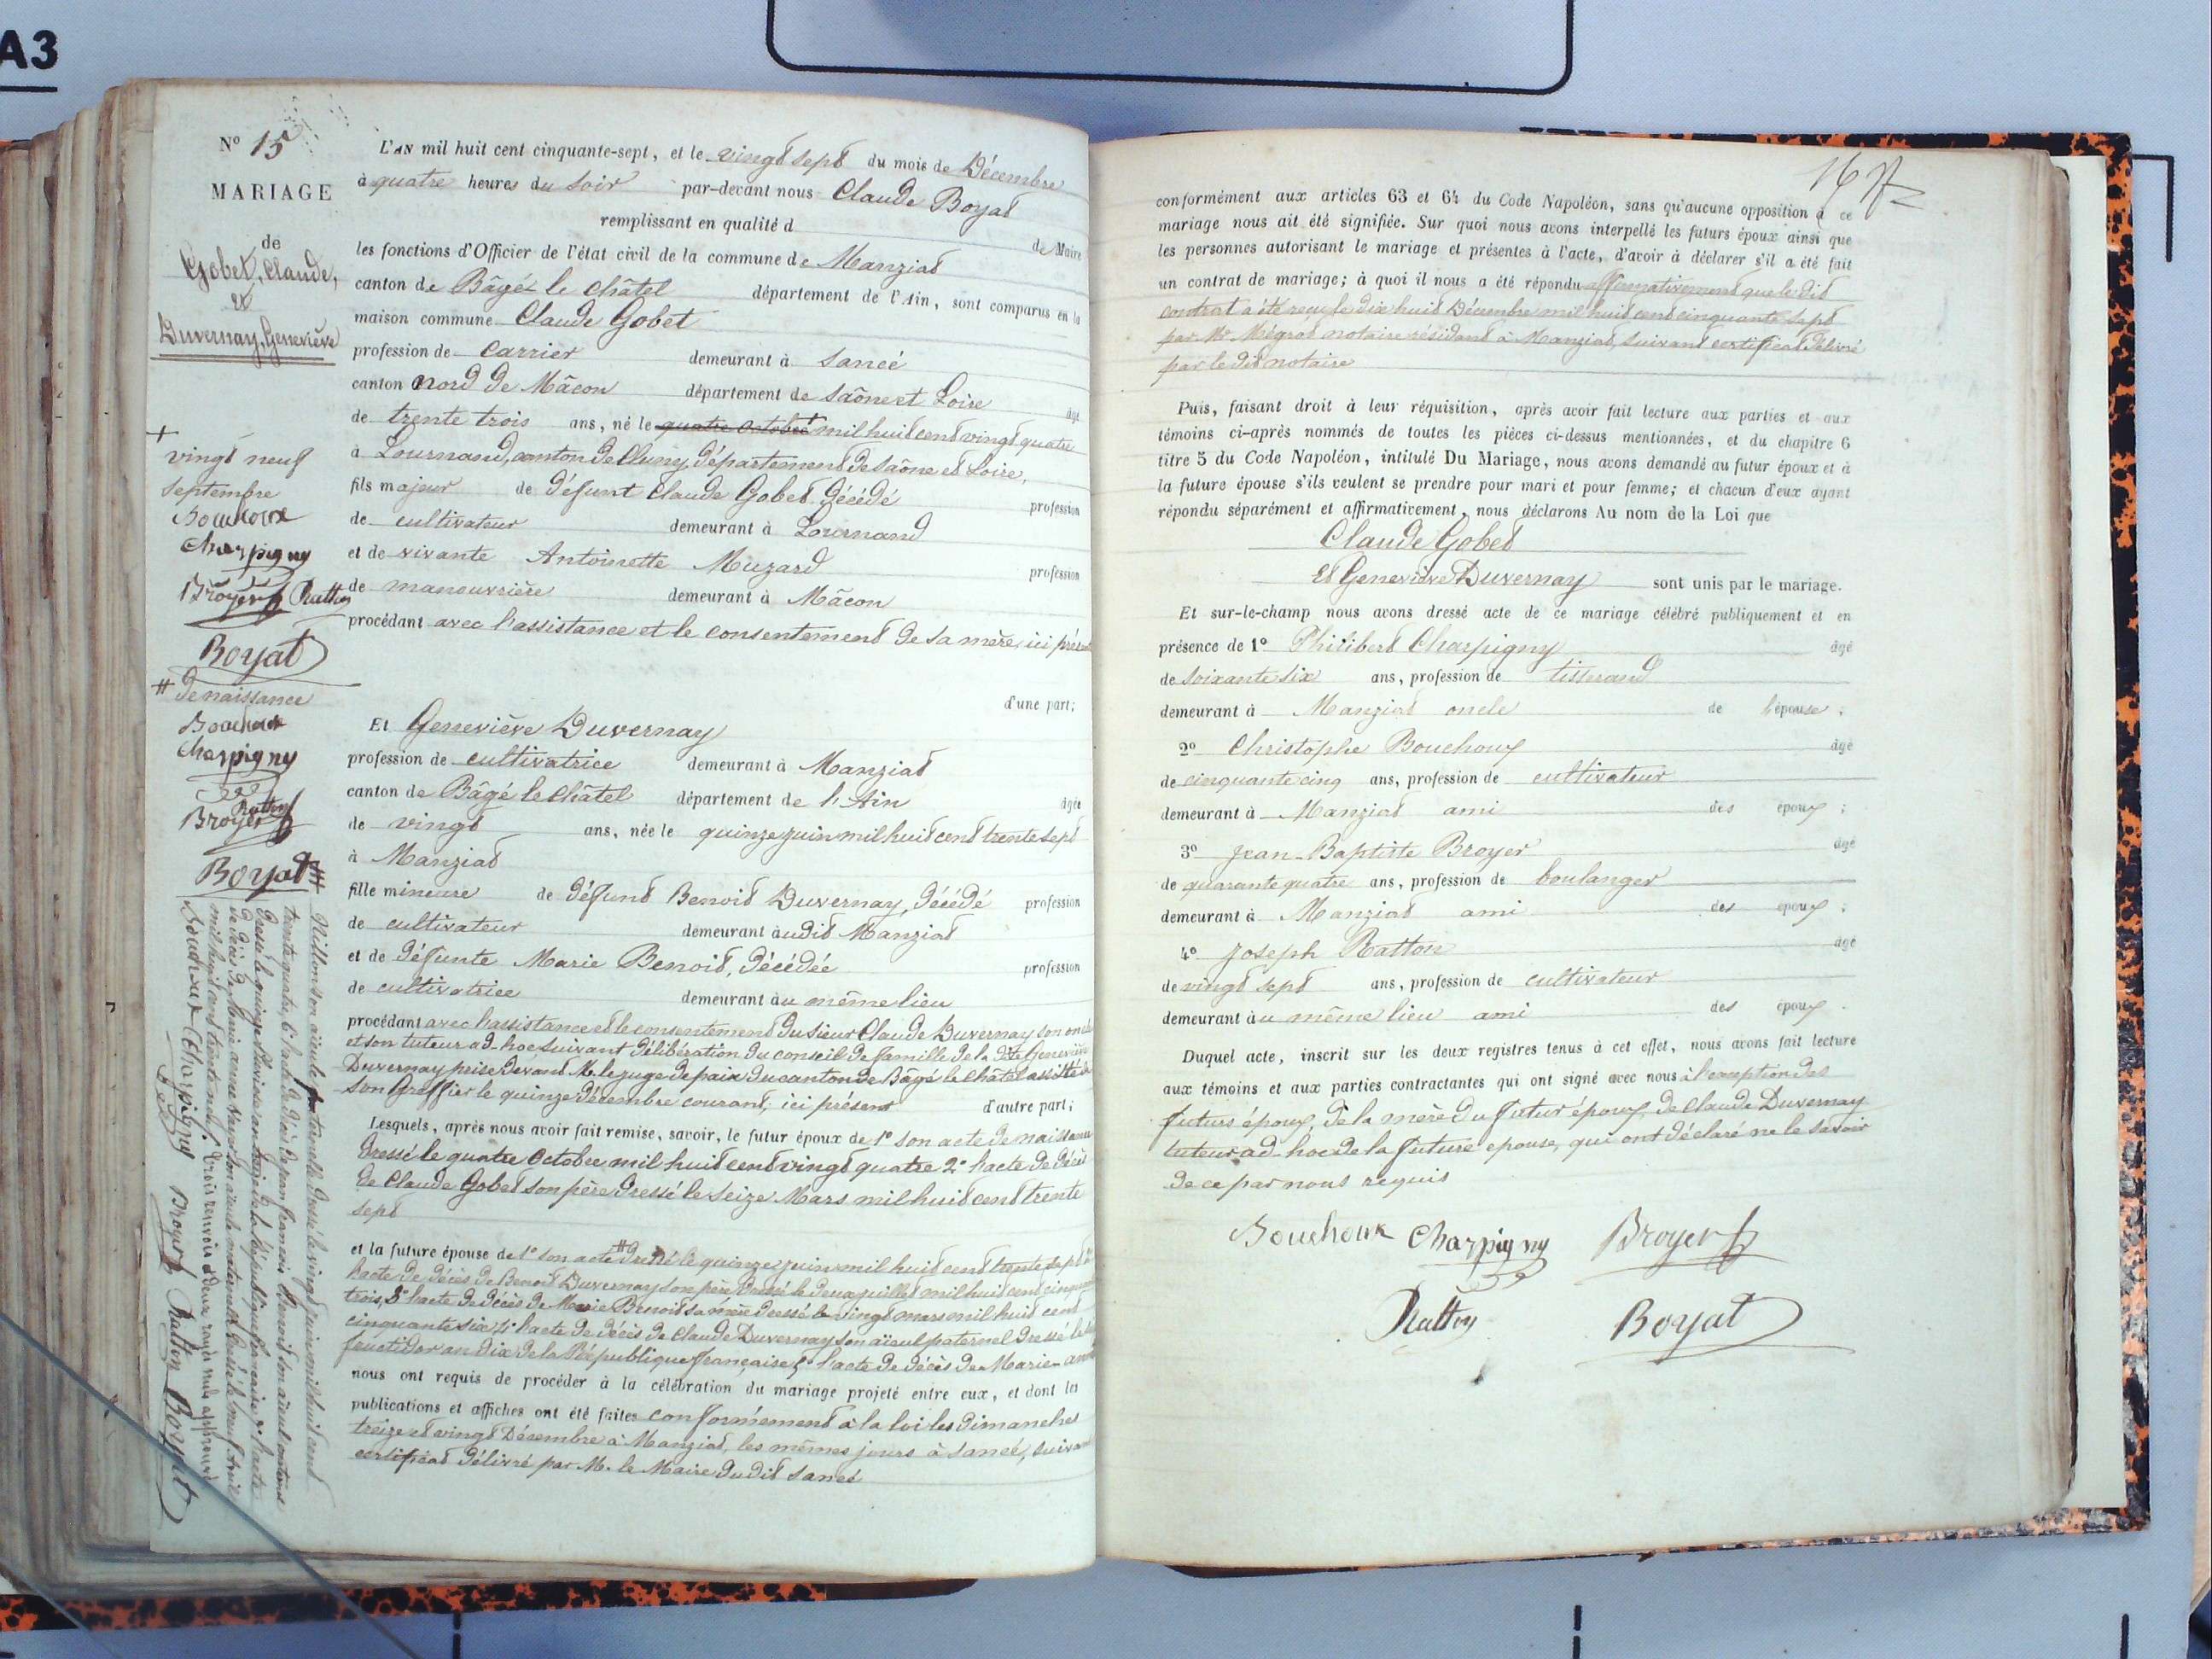 A3
N° 15
MARIAGE
de
Gobet, Claude,
et
Duvernay, Geneviève
+
vingt neuf
septembre
Bouchoux
Charpigny
Broyer Ratton
Boyat
# de naissance
Bouchoux
Charpigny
Ratton
Broyer
Boyat
L'AN mil huit cent cinquante-sept, et le vingt sept du mois de Décembre
à quatre heures du soir par-devant nous Claude Boyat
remplissant en qualité d
de Maire
les fonctions d'Officier de l'état civil de la commune de Manziat
canton de Bâgé le châtel département de l'Ain, sont comparus en la
maison commune Claude Gobet
profession de carrier demeurant à Sancé
canton nord de Mâcon département de Saône et Loire âgé
de trente trois ans, né le quatre octobre + mil huit cent vingt quatre
à Lournand, canton de Cluny, département de Saône et Loire,
fils majeur de défunt Claude Gobet décédé profession
de cultivateur demeurant à Lournand
et de vivante Antoinette Muzard profession
de manouvrière demeurant à Mâcon
procédant avec l'assistance et le consentement de sa mère, ici présente
d'une part;
Et Geneviève Duvernay
profession de cultivatrice demeurant à Manziat
canton de Bâgé le Châtel département de l'Ain âgée
de vingt ans, née le quinze juin mil huit cent trente sept
à Manziat
fille mineure de défunt Benoit Duvernay, décédé profession
de cultivateur demeurant audit Manziat
et de défunte Marie Benoit, décédée profession
de cultivatrice demeurant au même lieu
procédant avec l'assistance et le consentement du sieur Claude Duvernay son oncle
et son tuteur ad-hoc suivant délibération du conseil de famille de la dite Geneviève
Duvernay prise devant M. le juge de paix du canton de Bâgé le Châtel assisté de
son Greffier le quinze Décembre courant, ici présent d'autre part;
Lesquels, après nous avoir fait remise, savoir, le futur époux de 1° son acte de naissance
dressé le quatre Octobre mil huit cent vingt quatre 2° l'acte de décès
de Claude Gobet son père dressé le seize Mars mil huit cent trente
sept
et la future épouse de 1° son acte # dressé le quinze juin mil huit cent trente sept 2°
l'acte de décès de Benoit Duvernay son père dressé le deux juillet mil huit cent cinquante
trois, 3° l'acte de décès de Marie Benoit sa mère dressé le vingt mars mil huit cent
cinquante six 4° l'acte de décès de Claude Duvernay son aïeul paternel dressé le
fructidor an dix de la République française, 5° l'acte de décès de Marie-anne
nous ont requis de procéder à la célébration du mariage projeté entre eux, et dont les
publications et affiches ont été faites conformément à la loi les dimanches
treize et vingt Décembre à Manziat, les mêmes jours à Sancé, suivant
certificat délivré par M. le Maire du dit Sancé
# Nillon son aïeule paternelle dressé le vingt juin mil huit cent
trente quatre, 6° l'acte de décès de Jean françois Benoit son aïeul maternel
dressé le quinze an treize de la République française, 7° l'acte
de décès de Marie anne son aïeule maternelle dressé le neuf Avril
mil huit cent trente neuf. trois renvois et deux mots nuls approuvés
Bouchoux Charpigny Broyer Ratton Boyat
167
conformément aux articles 63 et 64 du Code Napoléon, sans qu'aucune opposition à ce
mariage nous ait été signifiée. Sur quoi nous avons interpellé les futurs époux ainsi que
les personnes autorisant le mariage et présentes à l'acte, d'avoir à déclarer s'il a été fait
un contrat de mariage; à quoi il nous a été répondu affirmativement que le dit
contrat a été reçu le dix huit Décembre mil huit cent cinquante sept
par Me Mégrat notaire résidant à Manziat, suivant certificat délivré
par le dit notaire
Puis, faisant droit à leur réquisition, après avoir fait lecture aux parties et aux
témoins ci-après nommés de toutes les pièces ci-dessus mentionnées, et du chapitre 6
titre 5 du Code Napoléon, intitulé Du Mariage, nous avons demandé au futur époux et à
la future épouse s'ils veulent se prendre pour mari et pour femme; et chacun d'eux ayant
répondu séparément et affirmativement, nous déclarons Au nom de la Loi que
Claude Gobet
Et Geneviève Duvernay sont unis par le mariage.
Et sur-le-champ nous avons dressé acte de ce mariage célébré publiquement et en
présence de 1° Philibert Charpigny âgé
de soixante six ans, profession de tisserand
demeurant à Manziat oncle de l'épouse;
2° Christophe Bouchoux âgé
de cinquante cinq ans, profession de cultivateur
demeurant à Manziat ami des époux;
3° Jean-Baptiste Broyer âgé
de quarante quatre ans, profession de boulanger
demeurant à Manziat ami des époux;
4° Joseph Ratton âgé
de vingt sept ans, profession de cultivateur
demeurant au même lieu ami des époux.
Duquel acte, inscrit sur les deux registres tenus à cet effet, nous avons fait lecture
aux témoins et aux parties contractantes qui ont signé avec nous à l'exception des
futurs époux, de la mère du futur époux, de Claude Duvernay
tuteur ad-hoc de la future epouse, qui ont déclaré ne le savoir
de ce par nous requis
Bouchoux Charpigny Broyer
Ratton Boyat